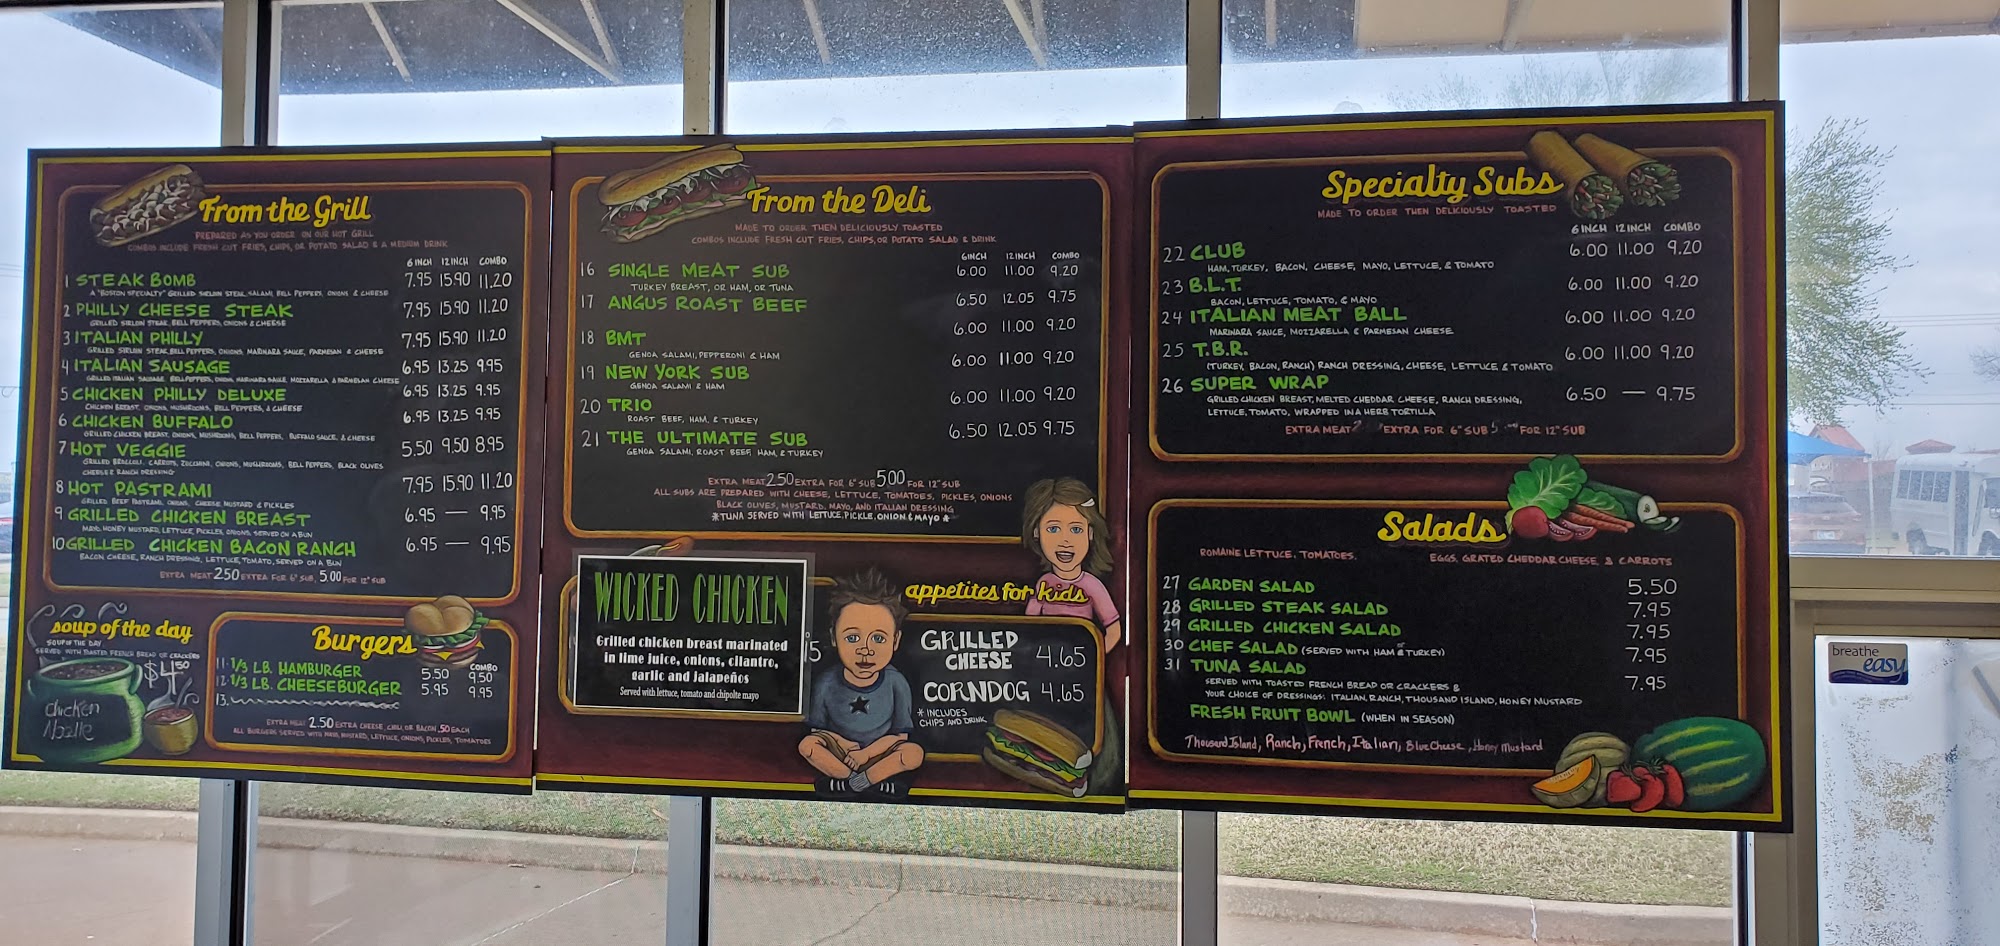 From the Grill
PREPARED AS YOU ORDER ON OUR HOT GRILL
COMBOS INCLUDE FRESH CUT FRIES, CHIPS, OR POTATO SALAD & A MEDIUM DRINK
6 INCH 12 INCH COMBO
1 STEAK BOMB 7.95 15.90 11.20
A "BOSTON SPECIALTY" GRILLED SIRLOIN STEAK, SALAMI, BELL PEPPERS, ONIONS & CHEESE
2 PHILLY CHEESE STEAK 7.95 15.90 11.20
GRILLED SIRLOIN STEAK, BELL PEPPERS, ONIONS & CHEESE
3 ITALIAN PHILLY 7.95 15.90 11.20
GRILLED SIRLOIN STEAK, BELL PEPPERS, ONIONS, MARINARA SAUCE, PARMESAN & CHEESE
4 ITALIAN SAUSAGE 6.95 13.25 9.95
GRILLED ITALIAN SAUSAGE, BELL PEPPERS, ONION, MARINARA SAUCE, MOZZARELLA & PARMESAN CHEESE
5 CHICKEN PHILLY DELUXE 6.95 13.25 9.95
CHICKEN BREAST, ONIONS, MUSHROOMS, BELL PEPPERS, & CHEESE
6 CHICKEN BUFFALO 6.95 13.25 9.95
GRILLED CHICKEN BREAST, ONIONS, MUSHROOMS, BELL PEPPERS, BUFFALO SAUCE, & CHEESE
7 HOT VEGGIE 5.50 9.50 8.95
GRILLED BROCCOLI, CARROTS, ZUCCHINI, ONIONS, MUSHROOMS, BELL PEPPERS, BLACK OLIVES
CHEESE & RANCH DRESSING
8 HOT PASTRAMI 7.95 15.90 11.20
GRILLED BEEF PASTRAMI, ONIONS, CHEESE, MUSTARD & PICKLES
9 GRILLED CHICKEN BREAST 6.95 — 9.95
MAYO, HONEY MUSTARD, LETTUCE, PICKLES, ONIONS, SERVED ON A BUN
10 GRILLED CHICKEN BACON RANCH 6.95 — 9.95
BACON CHEESE, RANCH DRESSING, LETTUCE, TOMATO, SERVED ON A BUN
EXTRA MEAT 2.50 EXTRA FOR 6" SUB, 5.00 FOR 12" SUB
soup of the day
SOUP OF THE DAY
SERVED WITH TOASTED FRENCH BREAD OR CRACKERS
$4.50
Chicken
Noodle
Burgers
COMBO
11. 1/3 LB. HAMBURGER 5.50 9.50
12. 1/3 LB. CHEESEBURGER 5.95 9.95
13.
EXTRA MEAT 2.50 EXTRA CHEESE, CHILI, OR BACON .50 EACH
ALL BURGERS SERVED WITH MAYO, MUSTARD, LETTUCE, ONIONS, PICKLES, TOMATOES
From the Deli
MADE TO ORDER THEN DELICIOUSLY TOASTED
COMBOS INCLUDE FRESH CUT FRIES, CHIPS, OR POTATO SALAD & DRINK
6 INCH 12 INCH COMBO
16 SINGLE MEAT SUB 6.00 11.00 9.20
TURKEY BREAST, OR HAM, OR TUNA
17 ANGUS ROAST BEEF 6.50 12.05 9.75
18 BMT 6.00 11.00 9.20
GENOA SALAMI, PEPPERONI & HAM
19 NEW YORK SUB 6.00 11.00 9.20
GENOA SALAMI & HAM
20 TRIO 6.00 11.00 9.20
ROAST BEEF, HAM, & TURKEY
21 THE ULTIMATE SUB 6.50 12.05 9.75
GENOA SALAMI, ROAST BEEF, HAM, & TURKEY
EXTRA MEAT 2.50 EXTRA FOR 6" SUB 5.00 FOR 12" SUB
ALL SUBS ARE PREPARED WITH CHEESE, LETTUCE, TOMATOES, PICKLES, ONIONS
BLACK OLIVES, MUSTARD, MAYO, AND ITALIAN DRESSING
*TUNA SERVED WITH LETTUCE, PICKLE, ONION & MAYO*
WICKED CHICKEN
Grilled chicken breast marinated
in lime juice, onions, cilantro,
garlic and jalapeños
Served with lettuce, tomato and chipolte mayo
appetites for kids
GRILLED
CHEESE 4.65
CORNDOG 4.65
* INCLUDES
CHIPS AND DRINK
Specialty Subs
MADE TO ORDER THEN DELICIOUSLY TOASTED
6 INCH 12 INCH COMBO
22 CLUB 6.00 11.00 9.20
HAM, TURKEY, BACON, CHEESE, MAYO, LETTUCE, & TOMATO
23 B.L.T. 6.00 11.00 9.20
BACON, LETTUCE, TOMATO, & MAYO
24 ITALIAN MEAT BALL 6.00 11.00 9.20
MARINARA SAUCE, MOZZARELLA & PARMESAN CHEESE
25 T.B.R. 6.00 11.00 9.20
(TURKEY, BACON, RANCH) RANCH DRESSING, CHEESE, LETTUCE & TOMATO
26 SUPER WRAP 6.50 — 9.75
GRILLED CHICKEN BREAST, MELTED CHEDDAR CHEESE, RANCH DRESSING,
LETTUCE, TOMATO, WRAPPED IN A HERB TORTILLA
EXTRA MEAT EXTRA FOR 6" SUB FOR 12" SUB
Salads
ROMAINE LETTUCE, TOMATOES, EGGS, GRATED CHEDDAR CHEESE, & CARROTS
27 GARDEN SALAD 5.50
28 GRILLED STEAK SALAD 7.95
29 GRILLED CHICKEN SALAD 7.95
30 CHEF SALAD (SERVED WITH HAM & TURKEY) 7.95
31 TUNA SALAD 7.95
SERVED WITH TOASTED FRENCH BREAD OR CRACKERS &
YOUR CHOICE OF DRESSINGS: ITALIAN, RANCH, THOUSAND ISLAND, HONEY MUSTARD
FRESH FRUIT BOWL (WHEN IN SEASON)
Thousand Island, Ranch, French, Italian, Blue Cheese, Honey Mustard
breathe
easy